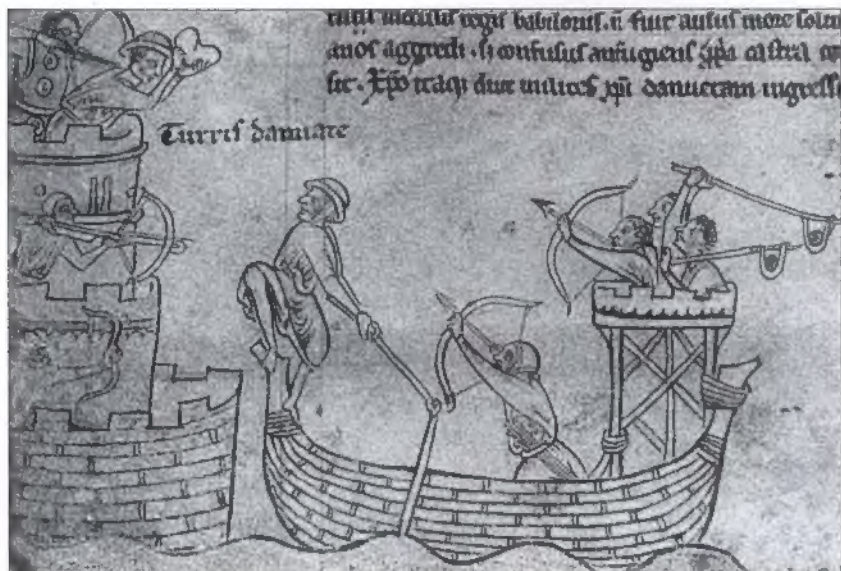 regis babilonis. n fuit ausus more solit
anos aggredi. s; confusus aufugiens castra
Xpo itaq; duce milites xpi damietam ingressi
Turris damiate